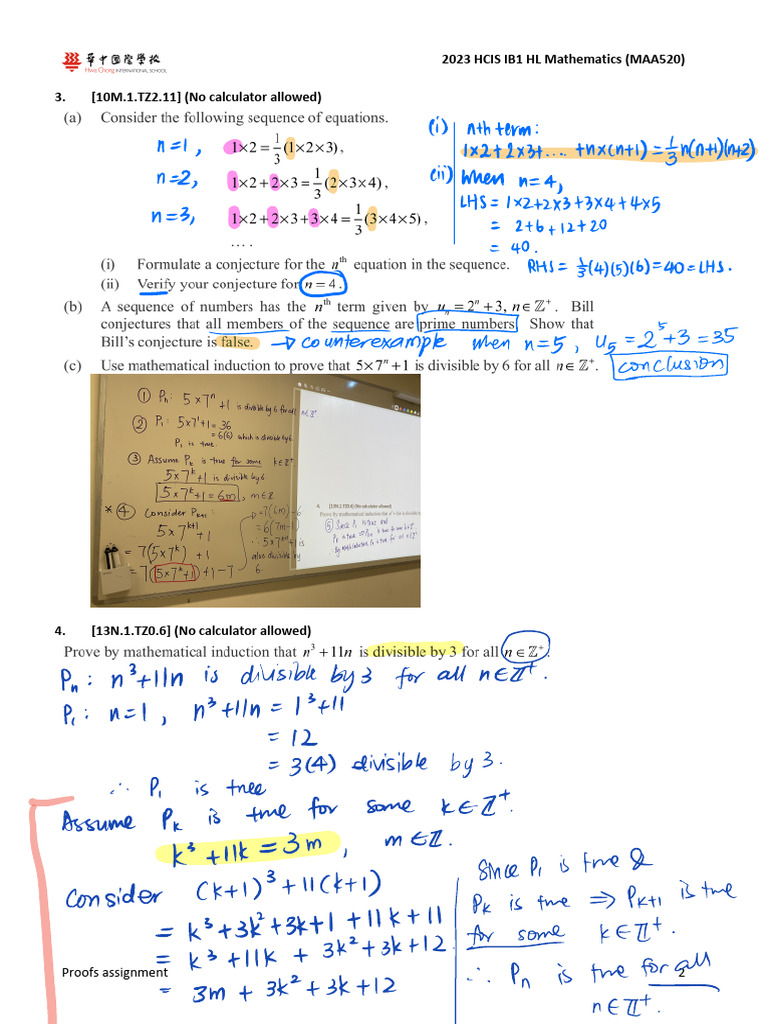 華中国際學校
Hwa Chong INTERNATIONAL SCHOOL
2023 HCIS IB1 HL Mathematics (MAA520)
3. [10M.1.TZ2.11] (No calculator allowed)
(a) Consider the following sequence of equations.
n=1, 1×2 = 1/3 (1×2×3),
n=2, 1×2+2×3 = 1/3 (2×3×4),
n=3, 1×2+2×3+3×4 = 1/3 (3×4×5),
....
(i) nth term:
1×2+2×3+....+n×(n+1) = 1/3 n(n+1)(n+2)
(ii) When n=4,
LHS = 1×2+2×3+3×4+4×5
= 2+6+12+20
= 40.
RHS = 1/3(4)(5)(6) = 40 = LHS.
(i) Formulate a conjecture for the nth equation in the sequence.
(ii) Verify your conjecture for n = 4.
(b) A sequence of numbers has the nth term given by uₙ = 2ⁿ + 3, n ∈ ℤ⁺. Bill
conjectures that all members of the sequence are prime numbers. Show that
Bill's conjecture is false. → counterexample when n=5, u₅ = 2⁵+3 = 35
conclusion
(c) Use mathematical induction to prove that 5×7ⁿ+1 is divisible by 6 for all n ∈ ℤ⁺.
① Pₙ: 5×7ⁿ+1 is divisible by 6 for all n∈ℤ⁺
② P₁: 5×7¹+1 = 36
= 6(6) which is divisible by 6
P₁ is true.
③ Assume Pₖ is true for some k∈ℤ⁺.
5×7ᵏ+1 is divisible by 6
5×7ᵏ+1 = 6m, m∈ℤ
* ④ Consider Pₖ₊₁:
5×7ᵏ⁺¹+1
= 7(5×7ᵏ)+1
= 7(5×7ᵏ+1)+1-7
= 7(6m)-6
= 6(7m-1)
∴ 5×7ᵏ⁺¹+1 is
also divisible by
6.
4. [13N.1.TZ0.6] (No calculator allowed)
⑤ Since P₁ is true and
4. [13N.1.TZ0.6] (No calculator allowed)
Prove by mathematical induction that n³+11n is divisible by 3 for all n ∈ ℤ⁺.
Pₙ: n³+11n is divisible by 3 for all n∈ℤ⁺.
P₁: n=1, n³+11n = 1³+11
= 12
= 3(4) divisible by 3.
∴ P₁ is true
Assume Pₖ is true for some k∈ℤ⁺.
k³+11k = 3m, m∈ℤ.
Consider (k+1)³+11(k+1)
= k³+3k²+3k+1+11k+11
= k³+11k + 3k²+3k+12
= 3m+3k²+3k+12
Since P₁ is true &
Pₖ is true ⇒ Pₖ₊₁ is true
for some k∈ℤ⁺.
∴ Pₙ is true for all
n∈ℤ⁺.
Proofs assignment
2